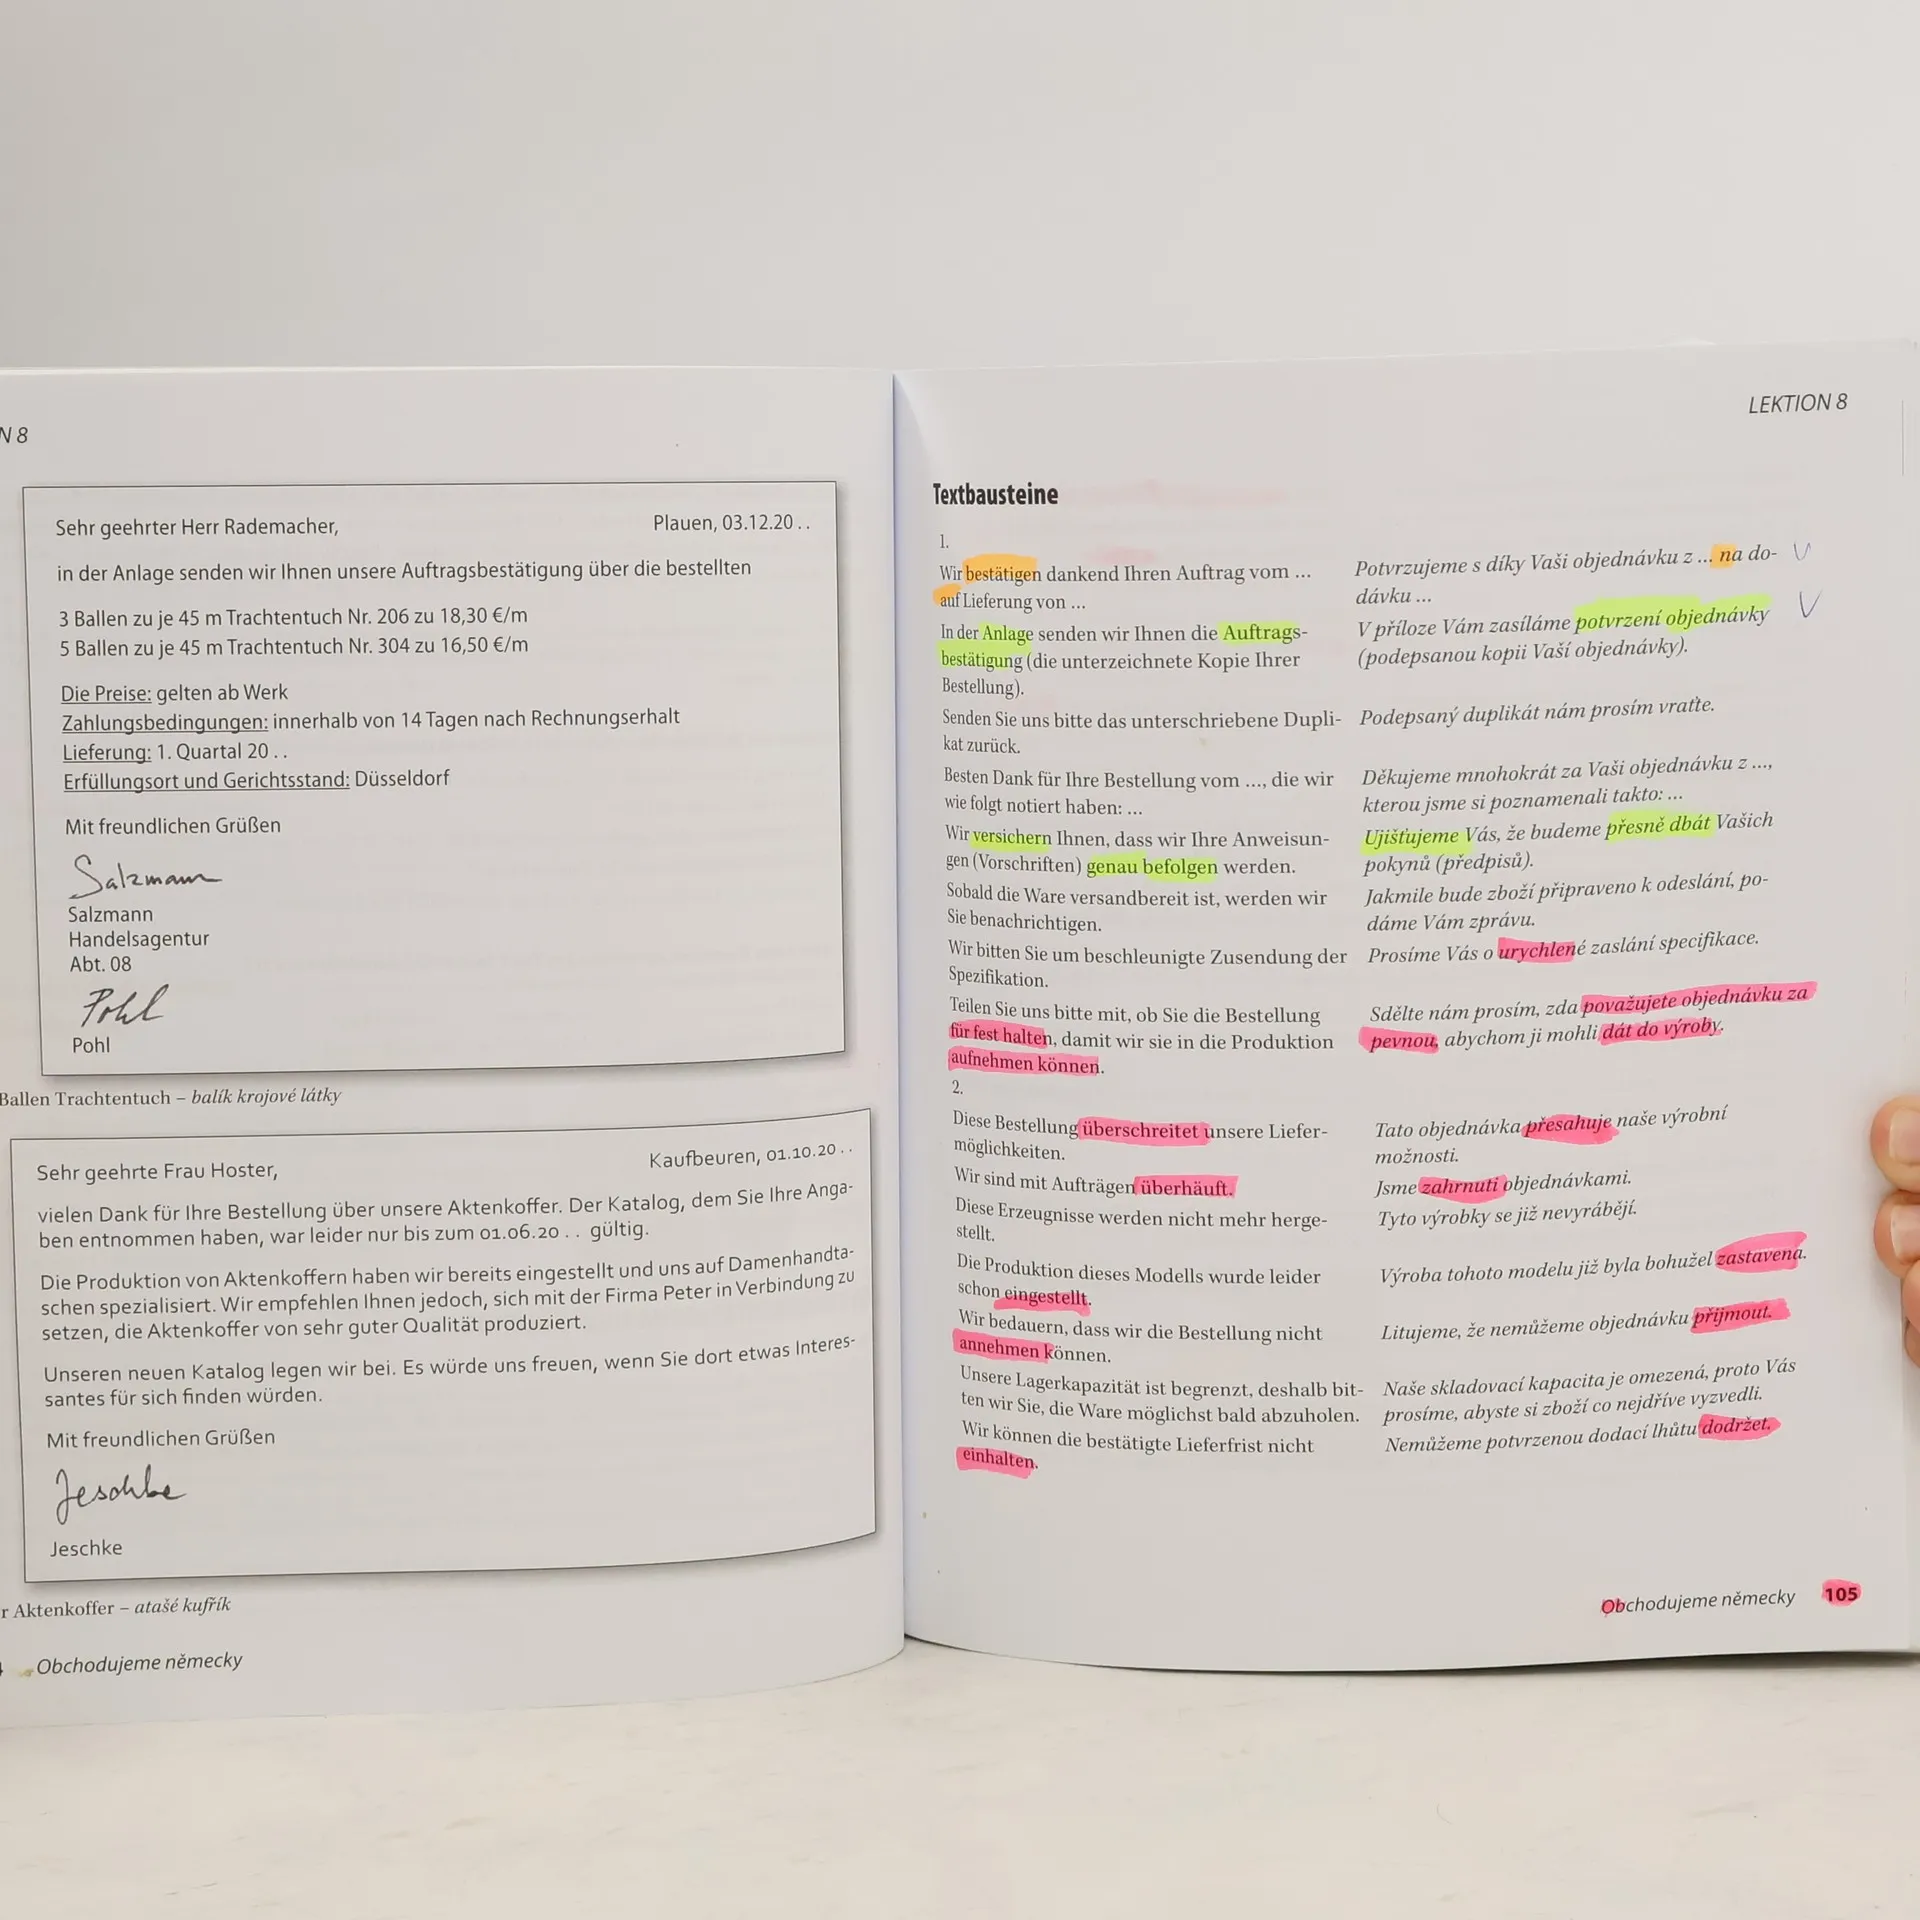 N 8
Sehr geehrter Herr Rademacher,
Plauen, 03.12.20 . .
in der Anlage senden wir Ihnen unsere Auftragsbestätigung über die bestellten
3 Ballen zu je 45 m Trachtentuch Nr. 206 zu 18,30 €/m
5 Ballen zu je 45 m Trachtentuch Nr. 304 zu 16,50 €/m
Die Preise: gelten ab Werk
Zahlungsbedingungen: innerhalb von 14 Tagen nach Rechnungserhalt
Lieferung: 1. Quartal 20 . .
Erfüllungsort und Gerichtsstand: Düsseldorf
Mit freundlichen Grüßen
Salzmann
Salzmann
Handelsagentur
Abt. 08
Pohl
Pohl
Ballen Trachtentuch – balík krojové látky
Sehr geehrte Frau Hoster,
Kaufbeuren, 01.10.20 . .
vielen Dank für Ihre Bestellung über unsere Aktenkoffer. Der Katalog, dem Sie Ihre Anga-
ben entnommen haben, war leider nur bis zum 01.06.20 . . gültig.
Die Produktion von Aktenkoffern haben wir bereits eingestellt und uns auf Damenhandta-
schen spezialisiert. Wir empfehlen Ihnen jedoch, sich mit der Firma Peter in Verbindung zu
setzen, die Aktenkoffer von sehr guter Qualität produziert.
Unseren neuen Katalog legen wir bei. Es würde uns freuen, wenn Sie dort etwas Interes-
santes für sich finden würden.
Mit freundlichen Grüßen
Jeschke
Jeschke
r Aktenkoffer – atašé kufřík
Obchodujeme německy
LEKTION 8
Textbausteine
1.
Wir bestätigen dankend Ihren Auftrag vom ...
auf Lieferung von ...
In der Anlage senden wir Ihnen die Auftrags-
bestätigung (die unterzeichnete Kopie Ihrer
Bestellung).
Senden Sie uns bitte das unterschriebene Dupli-
kat zurück.
Besten Dank für Ihre Bestellung vom ..., die wir
wie folgt notiert haben: ...
Wir versichern Ihnen, dass wir Ihre Anweisun-
gen (Vorschriften) genau befolgen werden.
Sobald die Ware versandbereit ist, werden wir
Sie benachrichtigen.
Wir bitten Sie um beschleunigte Zusendung der
Spezifikation.
Teilen Sie uns bitte mit, ob Sie die Bestellung
für fest halten, damit wir sie in die Produktion
aufnehmen können.
2.
Diese Bestellung überschreitet unsere Liefer-
möglichkeiten.
Wir sind mit Aufträgen überhäuft.
Diese Erzeugnisse werden nicht mehr herge-
stellt.
Die Produktion dieses Modells wurde leider
schon eingestellt.
Wir bedauern, dass wir die Bestellung nicht
annehmen können.
Unsere Lagerkapazität ist begrenzt, deshalb bit-
ten wir Sie, die Ware möglichst bald abzuholen.
Wir können die bestätigte Lieferfrist nicht
einhalten.
Potvrzujeme s díky Vaši objednávku z ... na do-
dávku ...
V příloze Vám zasíláme potvrzení objednávky
(podepsanou kopii Vaší objednávky).
Podepsaný duplikát nám prosím vraťte.
Děkujeme mnohokrát za Vaši objednávku z ...,
kterou jsme si poznamenali takto: ...
Ujišťujeme Vás, že budeme přesně dbát Vašich
pokynů (předpisů).
Jakmile bude zboží připraveno k odeslání, po-
dáme Vám zprávu.
Prosíme Vás o urychlené zaslání specifikace.
Sdělte nám prosím, zda považujete objednávku za
pevnou, abychom ji mohli dát do výroby.
Tato objednávka přesahuje naše výrobní
možnosti.
Jsme zahrnuti objednávkami.
Tyto výrobky se již nevyrábějí.
Výroba tohoto modelu již byla bohužel zastavena.
Litujeme, že nemůžeme objednávku přijmout.
Naše skladovací kapacita je omezená, proto Vás
prosíme, abyste si zboží co nejdříve vyzvedli.
Nemůžeme potvrzenou dodací lhůtu dodržet.
Obchodujeme německy 105